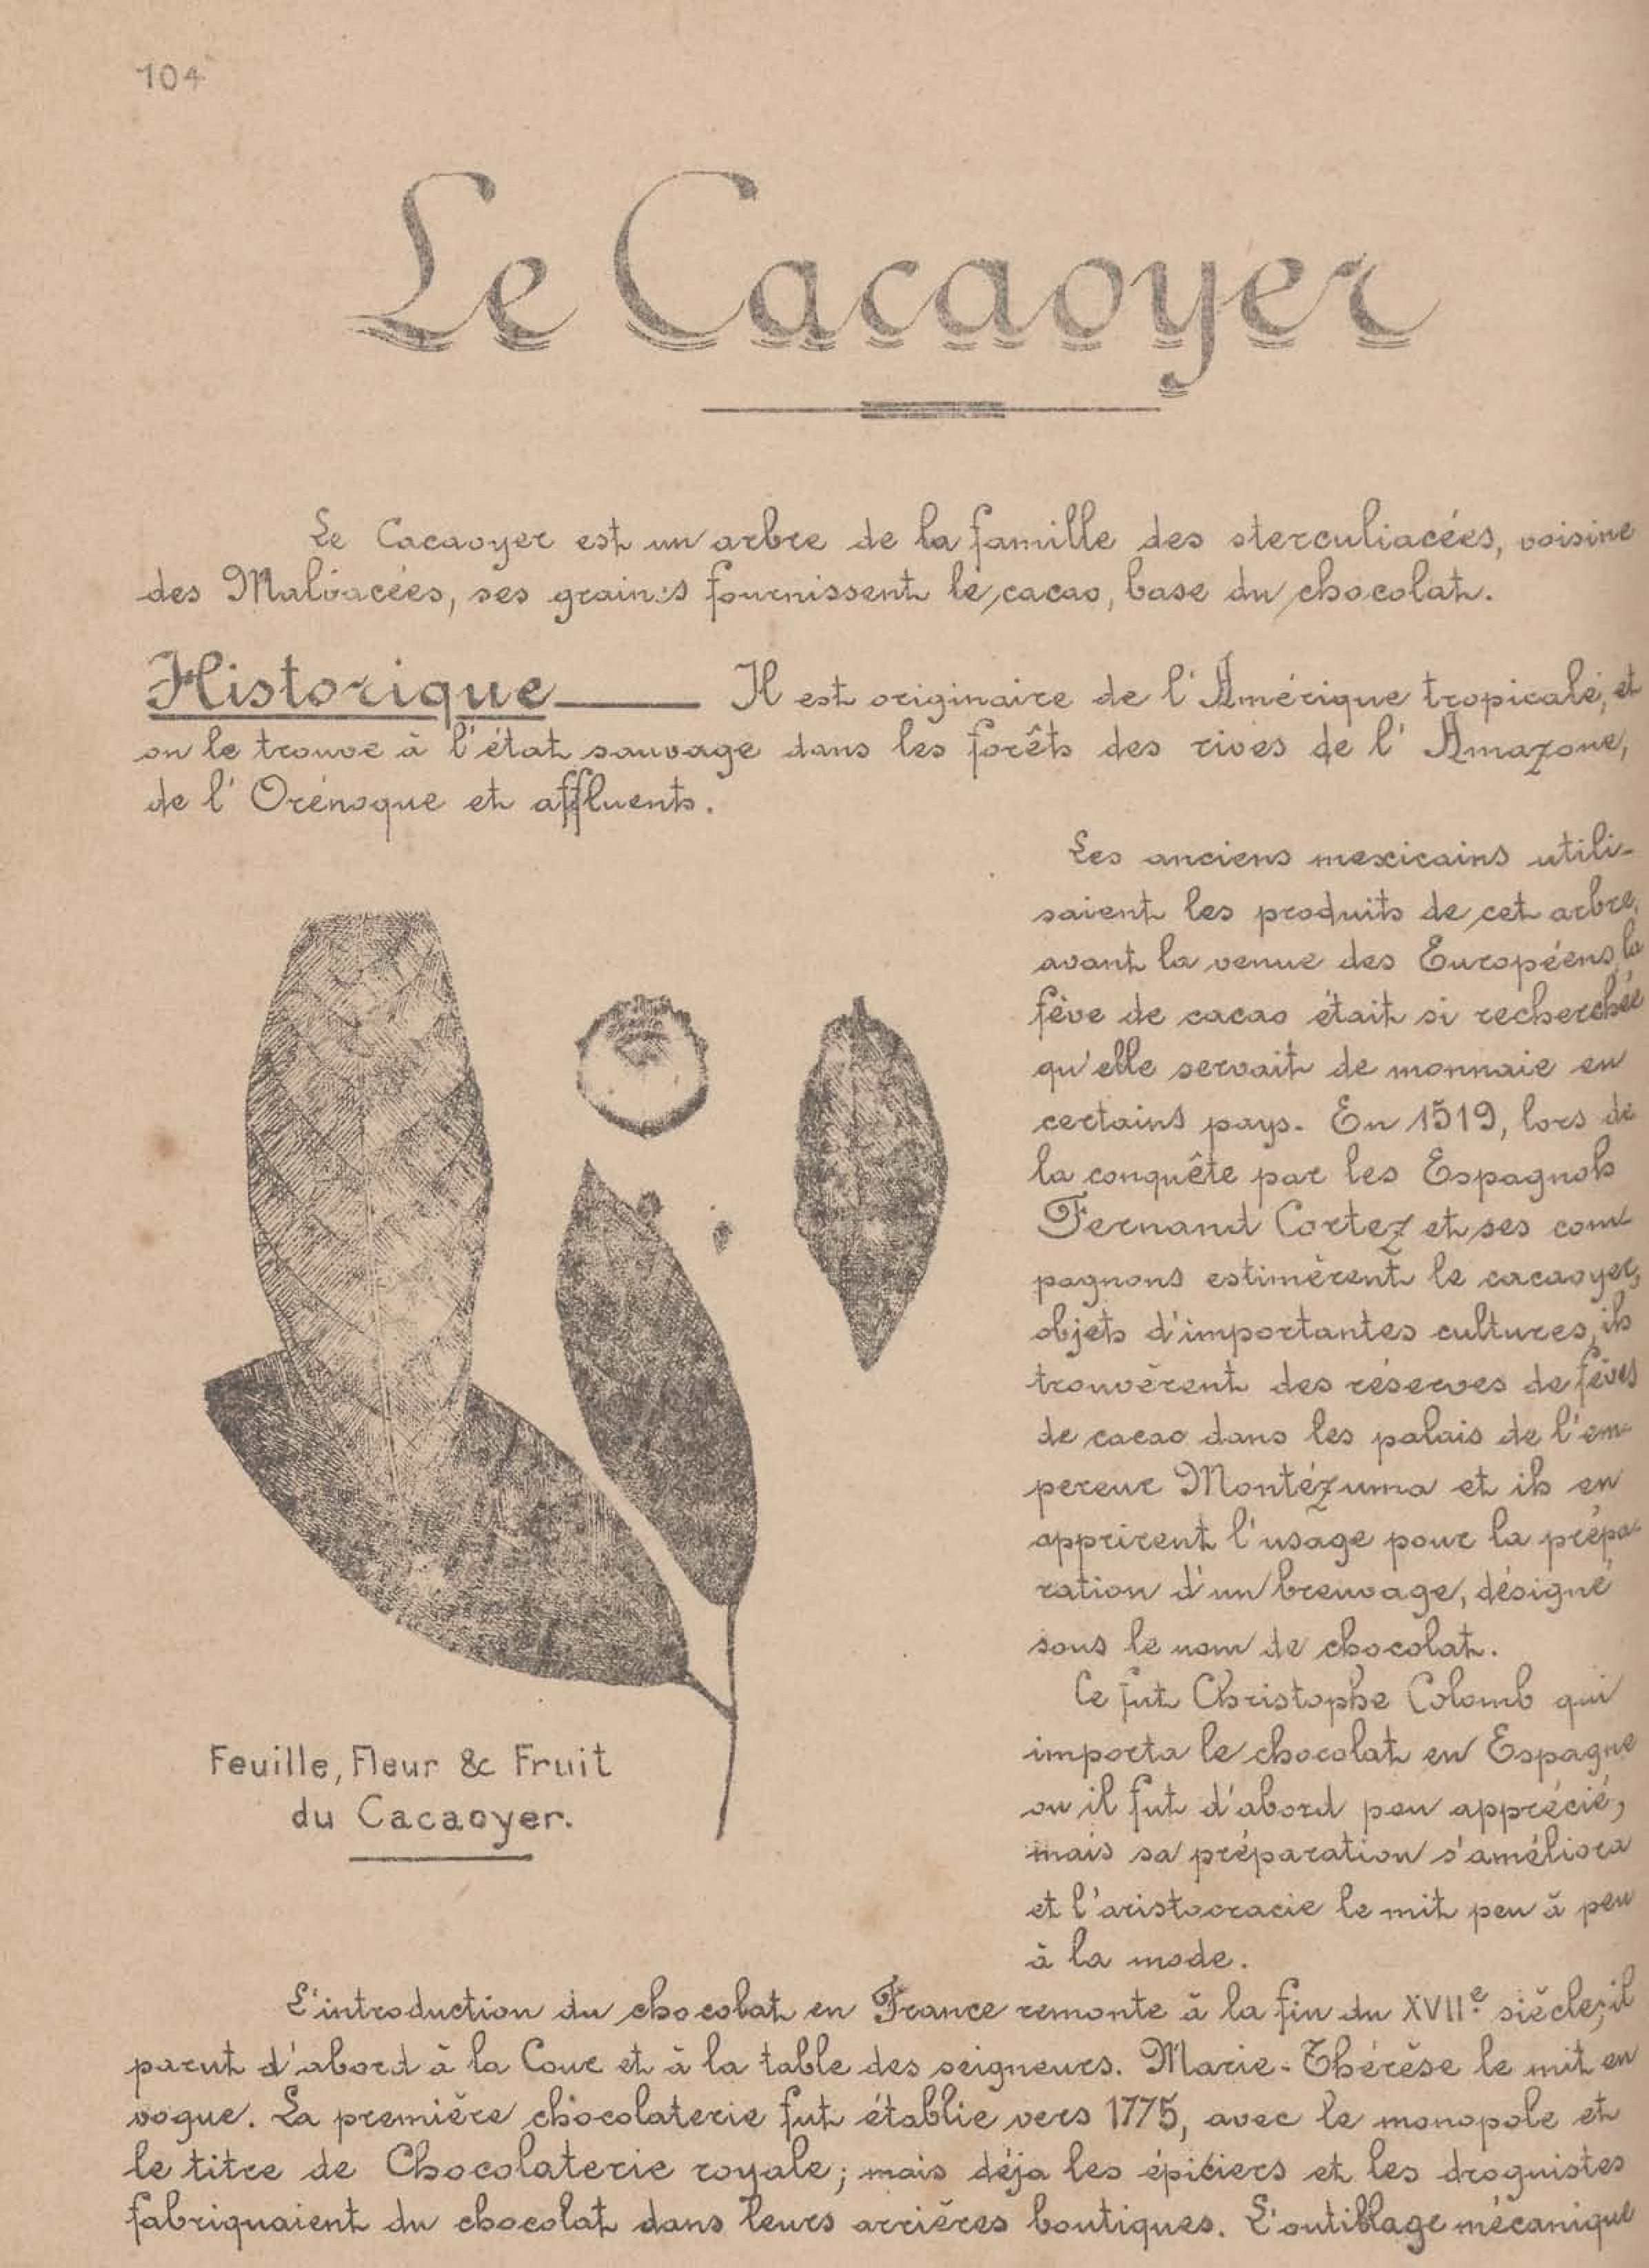 104
Le Cacaoyer
Le Cacaoyer est un arbre de la famille des sterculiacées, voisine
des Malvacées, ses graines fournissent le cacao, base du chocolat.
Historique Il est originaire de l'Amérique tropicale, et
on le trouve à l'état sauvage dans les forêts des rives de l'Amazone,
de l'Orénoque et affluents.
Les anciens mexicains utili-
saient les produits de cet arbre,
avant la venue des Européens, la
fève de cacao était si recherchée
qu'elle servait de monnaie en
certains pays. En 1519, lors de
la conquête par les Espagnols
Fernand Cortez et ses com-
pagnons estimèrent le cacaoyer,
objets d'importantes cultures, ils
trouvèrent des réserves de fèves
de cacao dans les palais de l'em-
pereur Montézuma et ils en
apprirent l'usage pour la prépa-
ration d'un breuvage, désigné
sous le nom de chocolat.
Ce fut Christophe Colomb qui
importa le chocolat en Espagne
ou il fut d'abord peu apprécié,
mais sa préparation s'améliora
et l'aristocracie le mit peu à peu
à la mode.
Feuille, Fleur & Fruit
du Cacaoyer.
L'introduction du chocolat en France remonte à la fin du XVIIe siècle, il
parut d'abord à la Cour et à la table des seigneurs. Marie-Thérèse le mit en
vogue. La première chocolaterie fut établie vers 1775, avec le monopole et
le titre de Chocolaterie royale; mais déja les épiciers et les droguistes
fabriquaient du chocolat dans leurs arrières boutiques. L'outillage mécanique